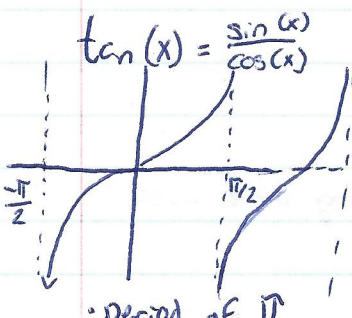 tan(x) = sin(x)/cos(x)
-π/2 π/2
• period of π